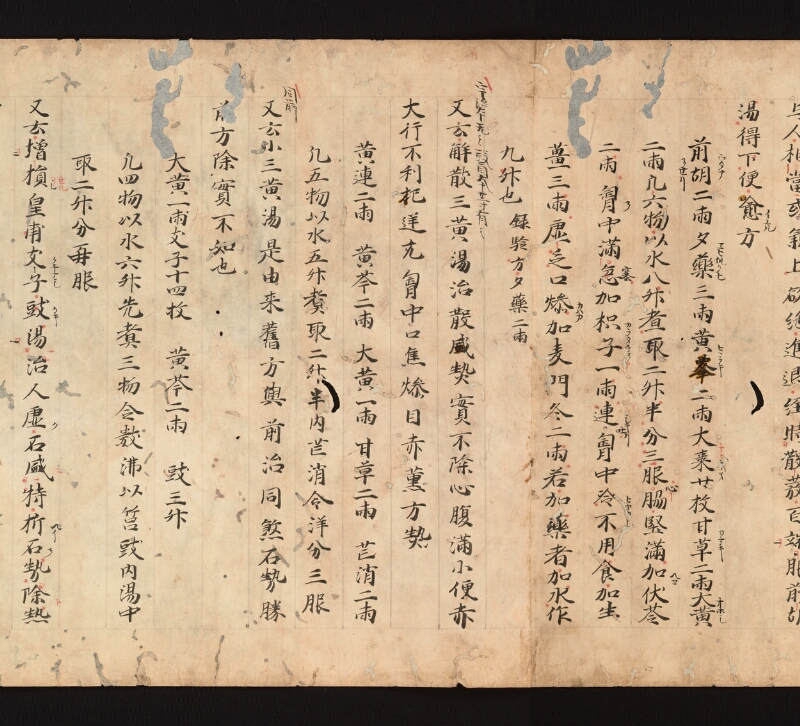 与人相當或氣上欲絶進退經時散發百端服前胡
湯得下便愈方
前胡二兩夕藥三兩黃芩二兩大棗廿枚甘草二兩大黃
二兩凡六物以水八升煮取二升半分三服脇堅滿加伏苓
二兩胷中滿急加枳子一兩連胷中冷不用食加生
薑三兩虛乏口燥加麦門冬二兩若加藥者加水作
九升也 録验方夕藥二兩
又云解散三黃湯治散盛熱實不除心腹滿小便赤
大行不利杞逆充胷中口焦燥目赤薰方熱
黃連二兩 黃芩二兩 大黃一兩 甘草二兩 芒消二兩
凡五物以水五升煑取二升半内芒消令洋分三服
同前
又云小三黃湯是由來舊方與前治同煞石勢勝
前方除實不如也
大黃一兩支子十四枚 黃芩二兩 豉三升
凡四物以水六升先煑三物令數沸以筥豉内湯中
取二升分再服
又云增損皇甫支子豉湯治人虛石盛特折石勢除熱